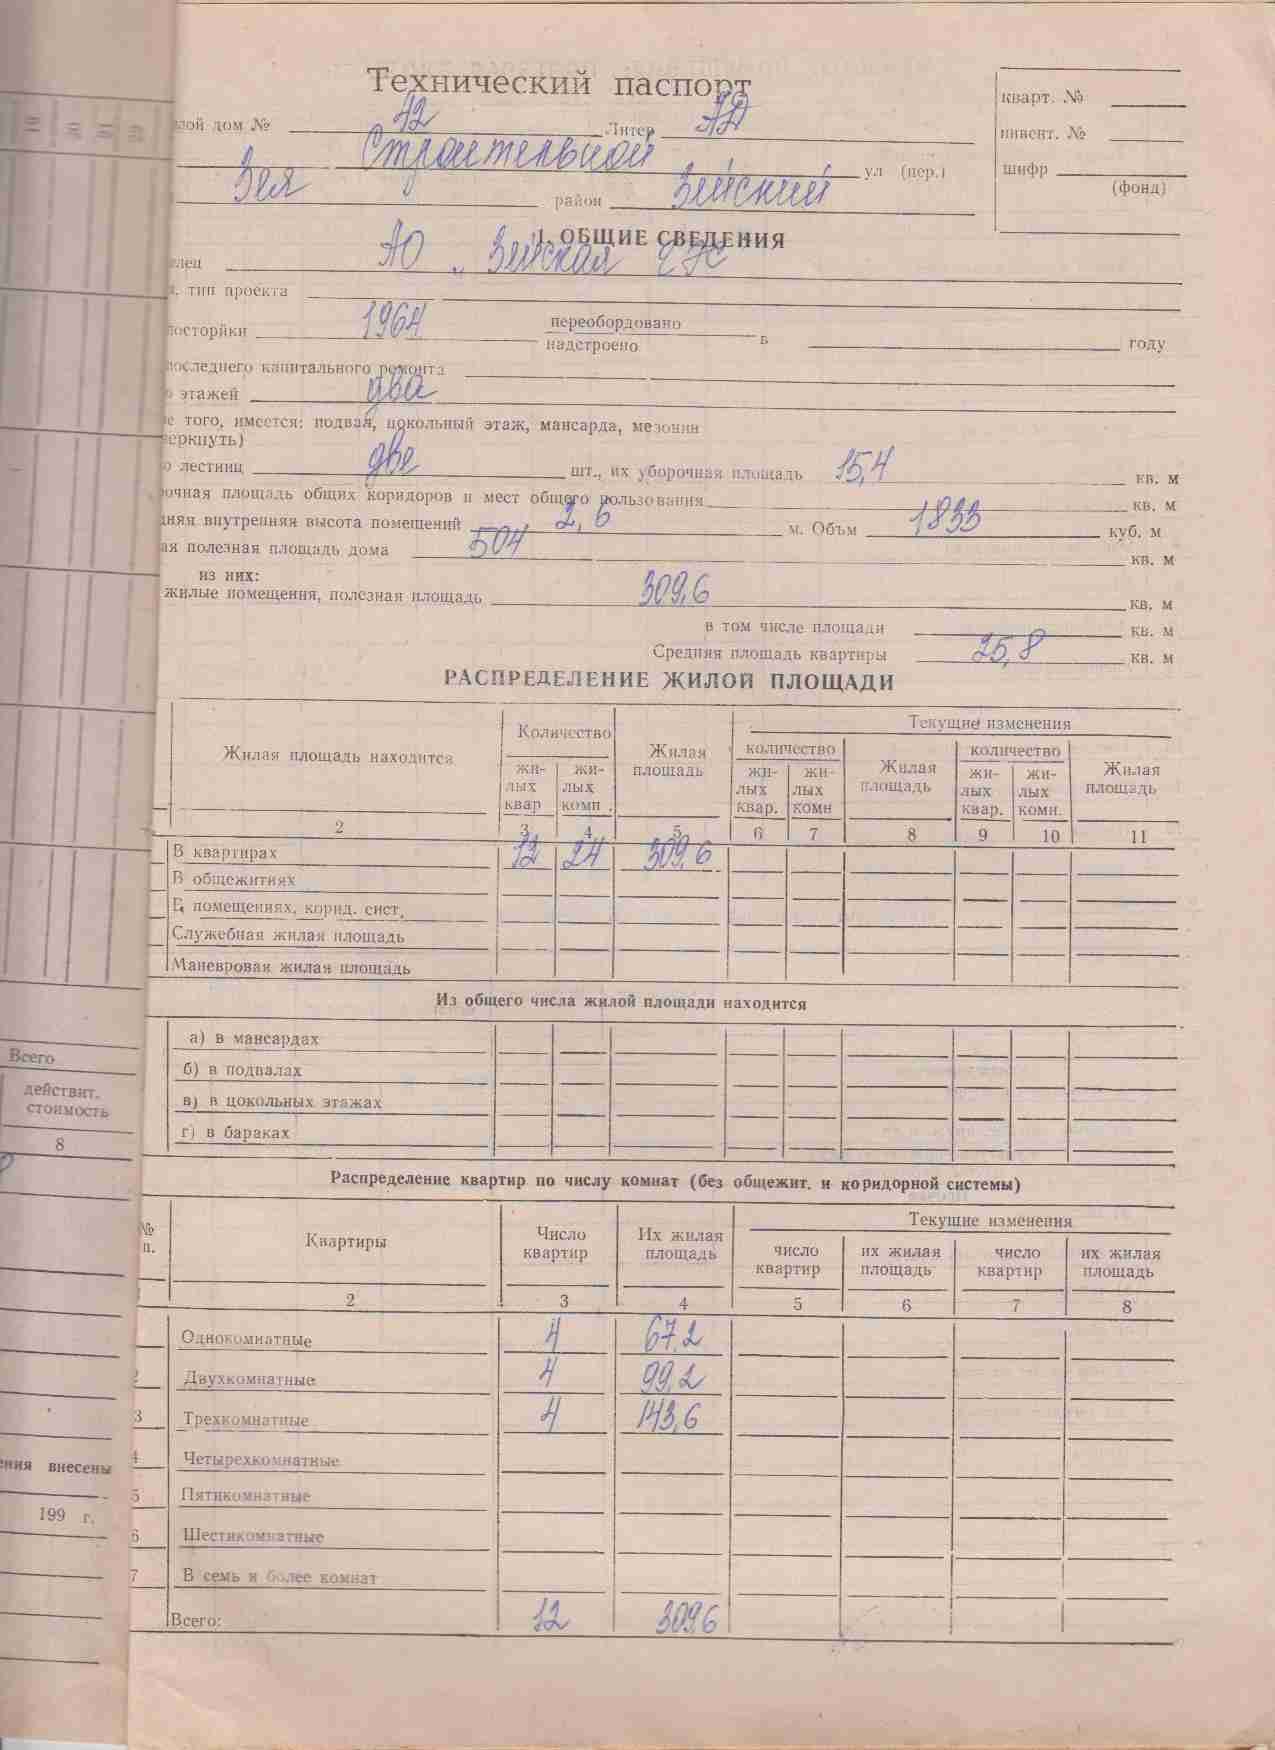 Технический паспорт
кварт. №
лой дом № 42 Литер АД
инвент. №
Строительной ул (пер.)
шифр
(фонд)
Зея район Зейский
1. ОБЩИЕ СВЕДЕНИЯ
лец АО „ Зейская ГЭС
, тип проекта
посторйки 1964 переобордовано
надстроено в году
последнего капитального ремонта
о этажей два
ме того, имеется: подвал, цокольный этаж, мансарда, мезонин
веркнуть)
о лестниц две шт., их уборочная площадь 15,4 кв. м
рочная площадь общих коридоров и мест общего пользования кв. м
дняя внутренняя высота помещений 2,6 м. Объм 1833 куб. м
ая полезная площадь дома 504 кв. м
из них:
жилые помещения, полезная площадь 309,6 кв. м
в том числе площади кв. м
Средняя площадь квартиры 25,8 кв. м
РАСПРЕДЕЛЕНИЕ ЖИЛОЙ ПЛОЩАДИ
Жилая площадь находится Количество Жилая площадь Текущие изменения
количество Жилая площадь количество Жилая площадь
жи-лых квар жи-лых комн. жи-лых квар. жи-лых комн жи-лых квар. жи-лых комн.
2 3 4 5 6 7 8 9 10 11
В квартирах 12 24 309,6
В общежитиях
В помещениях, корид. сист.
Служебная жилая площадь
Маневровая жилая площадь
Из общего числа жилой площади находится
а) в мансардах
б) в подвалах
в) в цокольных этажах
г) в бараках
Распределение квартир по числу комнат (без общежит. и коридорной системы)
№ п. Квартиры Число квартир Их жилая площадь Текущие изменения
число квартир их жилая площадь число квартир их жилая площадь
2 3 4 5 6 7 8
Однокомнатные 4 67,2
2 Двухкомнатные 4 99,2
3 Трехкомнатные 4 143,6
4 Четырехкомнатные
5 Пятикомнатные
6 Шестикомнатные
7 В семь и более комнат
Всего: 12 309,6
Всего
действит.
стоимость
8
ения внесены
199 г.